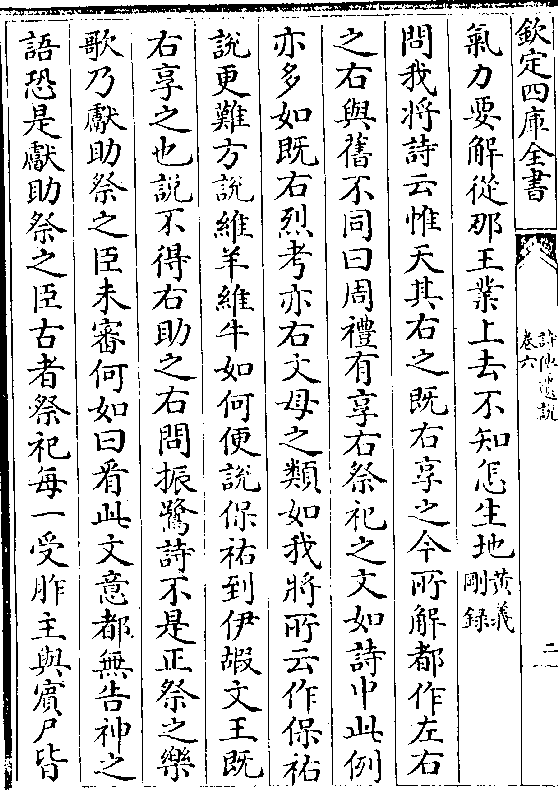 欽定四庫全書
詩傳遺說
卷六
二
氣力要解從那王業上去不知怎生地黃義剛錄
問我將詩云惟天其右之既右享之今所解都作左右
之右與舊不同曰周禮有享右祭祀之文如詩中此例
亦多如既右烈考亦右文母之類如我將所云作保祐
說更難方說維羊維牛如何便說保祐到伊嘏文王既
右享之也說不得右助之右問振鷺詩不是正祭之樂
歌乃獻助祭之臣未審何如曰看此文意都無告神之
語恐是獻助祭之臣古者祭祀每一受胙主與賓尸皆